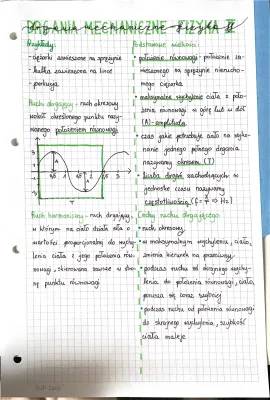 DRGANIA MECHANICZNE - FIZYKA II
Przykłady:
- ciężarki zawieszone na sprężynie
- kulka zawieszona na lince
- perkusja
Ruch drgający - ruch okresowy
wokół określonego punktu nazy-
wanego położeniem równowagi
T
Ruch harmoniczny - ruch drgający,
w którym na ciało działa siła o
wartości proporcjonalnej do wychy-
lenia ciała z jego położenia rów-
nowagi, skierowana zawsze w stro-
nę punktu równowagi
Podstawowe wielkości:
• położenie równowagi - położenie za-
wieszonego na sprężynie nierucho-
mego ciężarka
• maksymalne wychylenie ciała z poło-
żenia równowagi w górę lub w dół
(A) - amplituda
• czas jakie potrzebuje ciało na wyko-
nanie jednego pełnego drgania
nazywamy okresem (T)
• liczba drgań zachodzących w
jednostce czasu nazywamy
częstotliwością (f = 1/T ⇒ Hz)
Cechy ruchu drgającego:
• ruch okresowy,
• w maksymalnym wychyleniu, ciało,
zmienia kierunek na przeciwny
• podczas ruchu od skrajnego wychy-
lenia do położenia równowagi, ciało,
porusza się coraz szybciej
• podczas ruchu od położenia równowagi
do skrajnego wychylenia, szybkość
ciała maleje